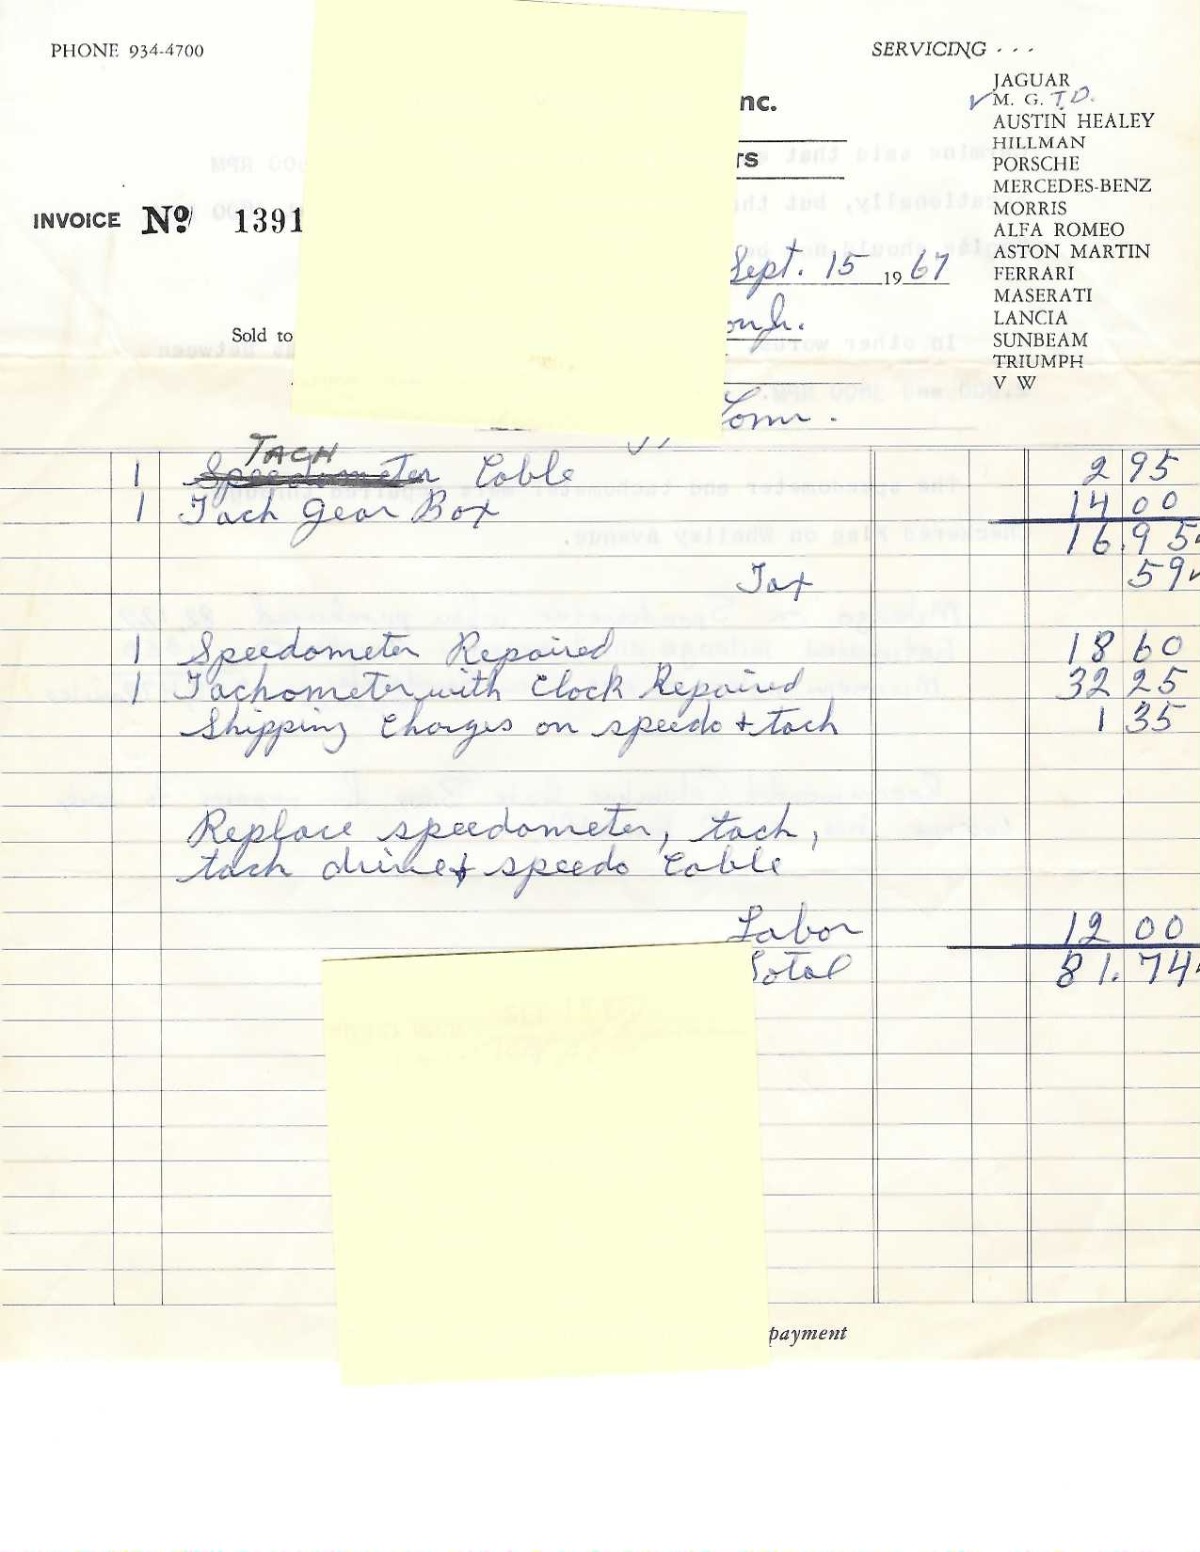 PHONE 934-4700
SERVICING . . .
JAGUAR
✓ M. G. T.D.
AUSTIN HEALEY
HILLMAN
PORSCHE
MERCEDES-BENZ
MORRIS
ALFA ROMEO
ASTON MARTIN
FERRARI
MASERATI
LANCIA
SUNBEAM
TRIUMPH
V W
nc.
rs
INVOICE Nº 1391
Sept. 15 1967
Sold to
Conn.
1 TACH Speedometer Cable 2 95
1 Tach Gear Box 14 00
16.95
Tax 59
1 Speedometer Repaired 18 60
1 Tachometer with Clock Repaired 32 25
Shipping Charges on speedo + tach 1 35
Replace speedometer, tach,
tach drive + speedo Cable
Labor 12 00
Total 81.74
payment